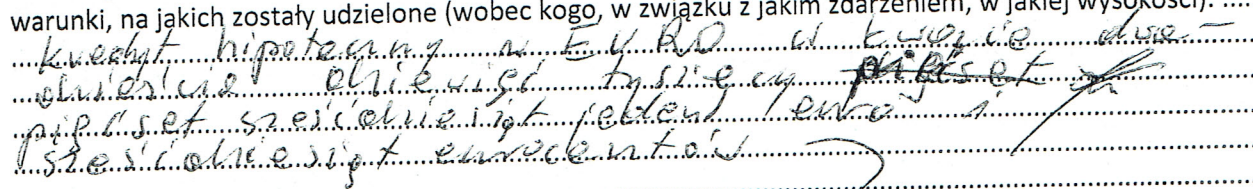 warunki, na jakich zostały udzielone (wobec kogo, w związku z jakim zdarzeniem, w jakiej wysokości): ....
kredyt hipoteczny w EURO w kwocie dwa-
dzieścia dziewięć tysięcy pięćset
pięćset sześćdziesiąt jeden euro i
sześćdziesiąt eurocentów